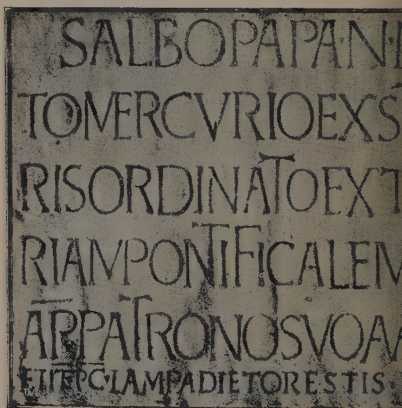 SALBOPAPA·N·I
TOMERCVRIOEXS
RISORDINATOEXT
RIAMPONTIFICALEM
APPATRONOSVOAA
ETIIFPC·LAMPADIETORESTIS·